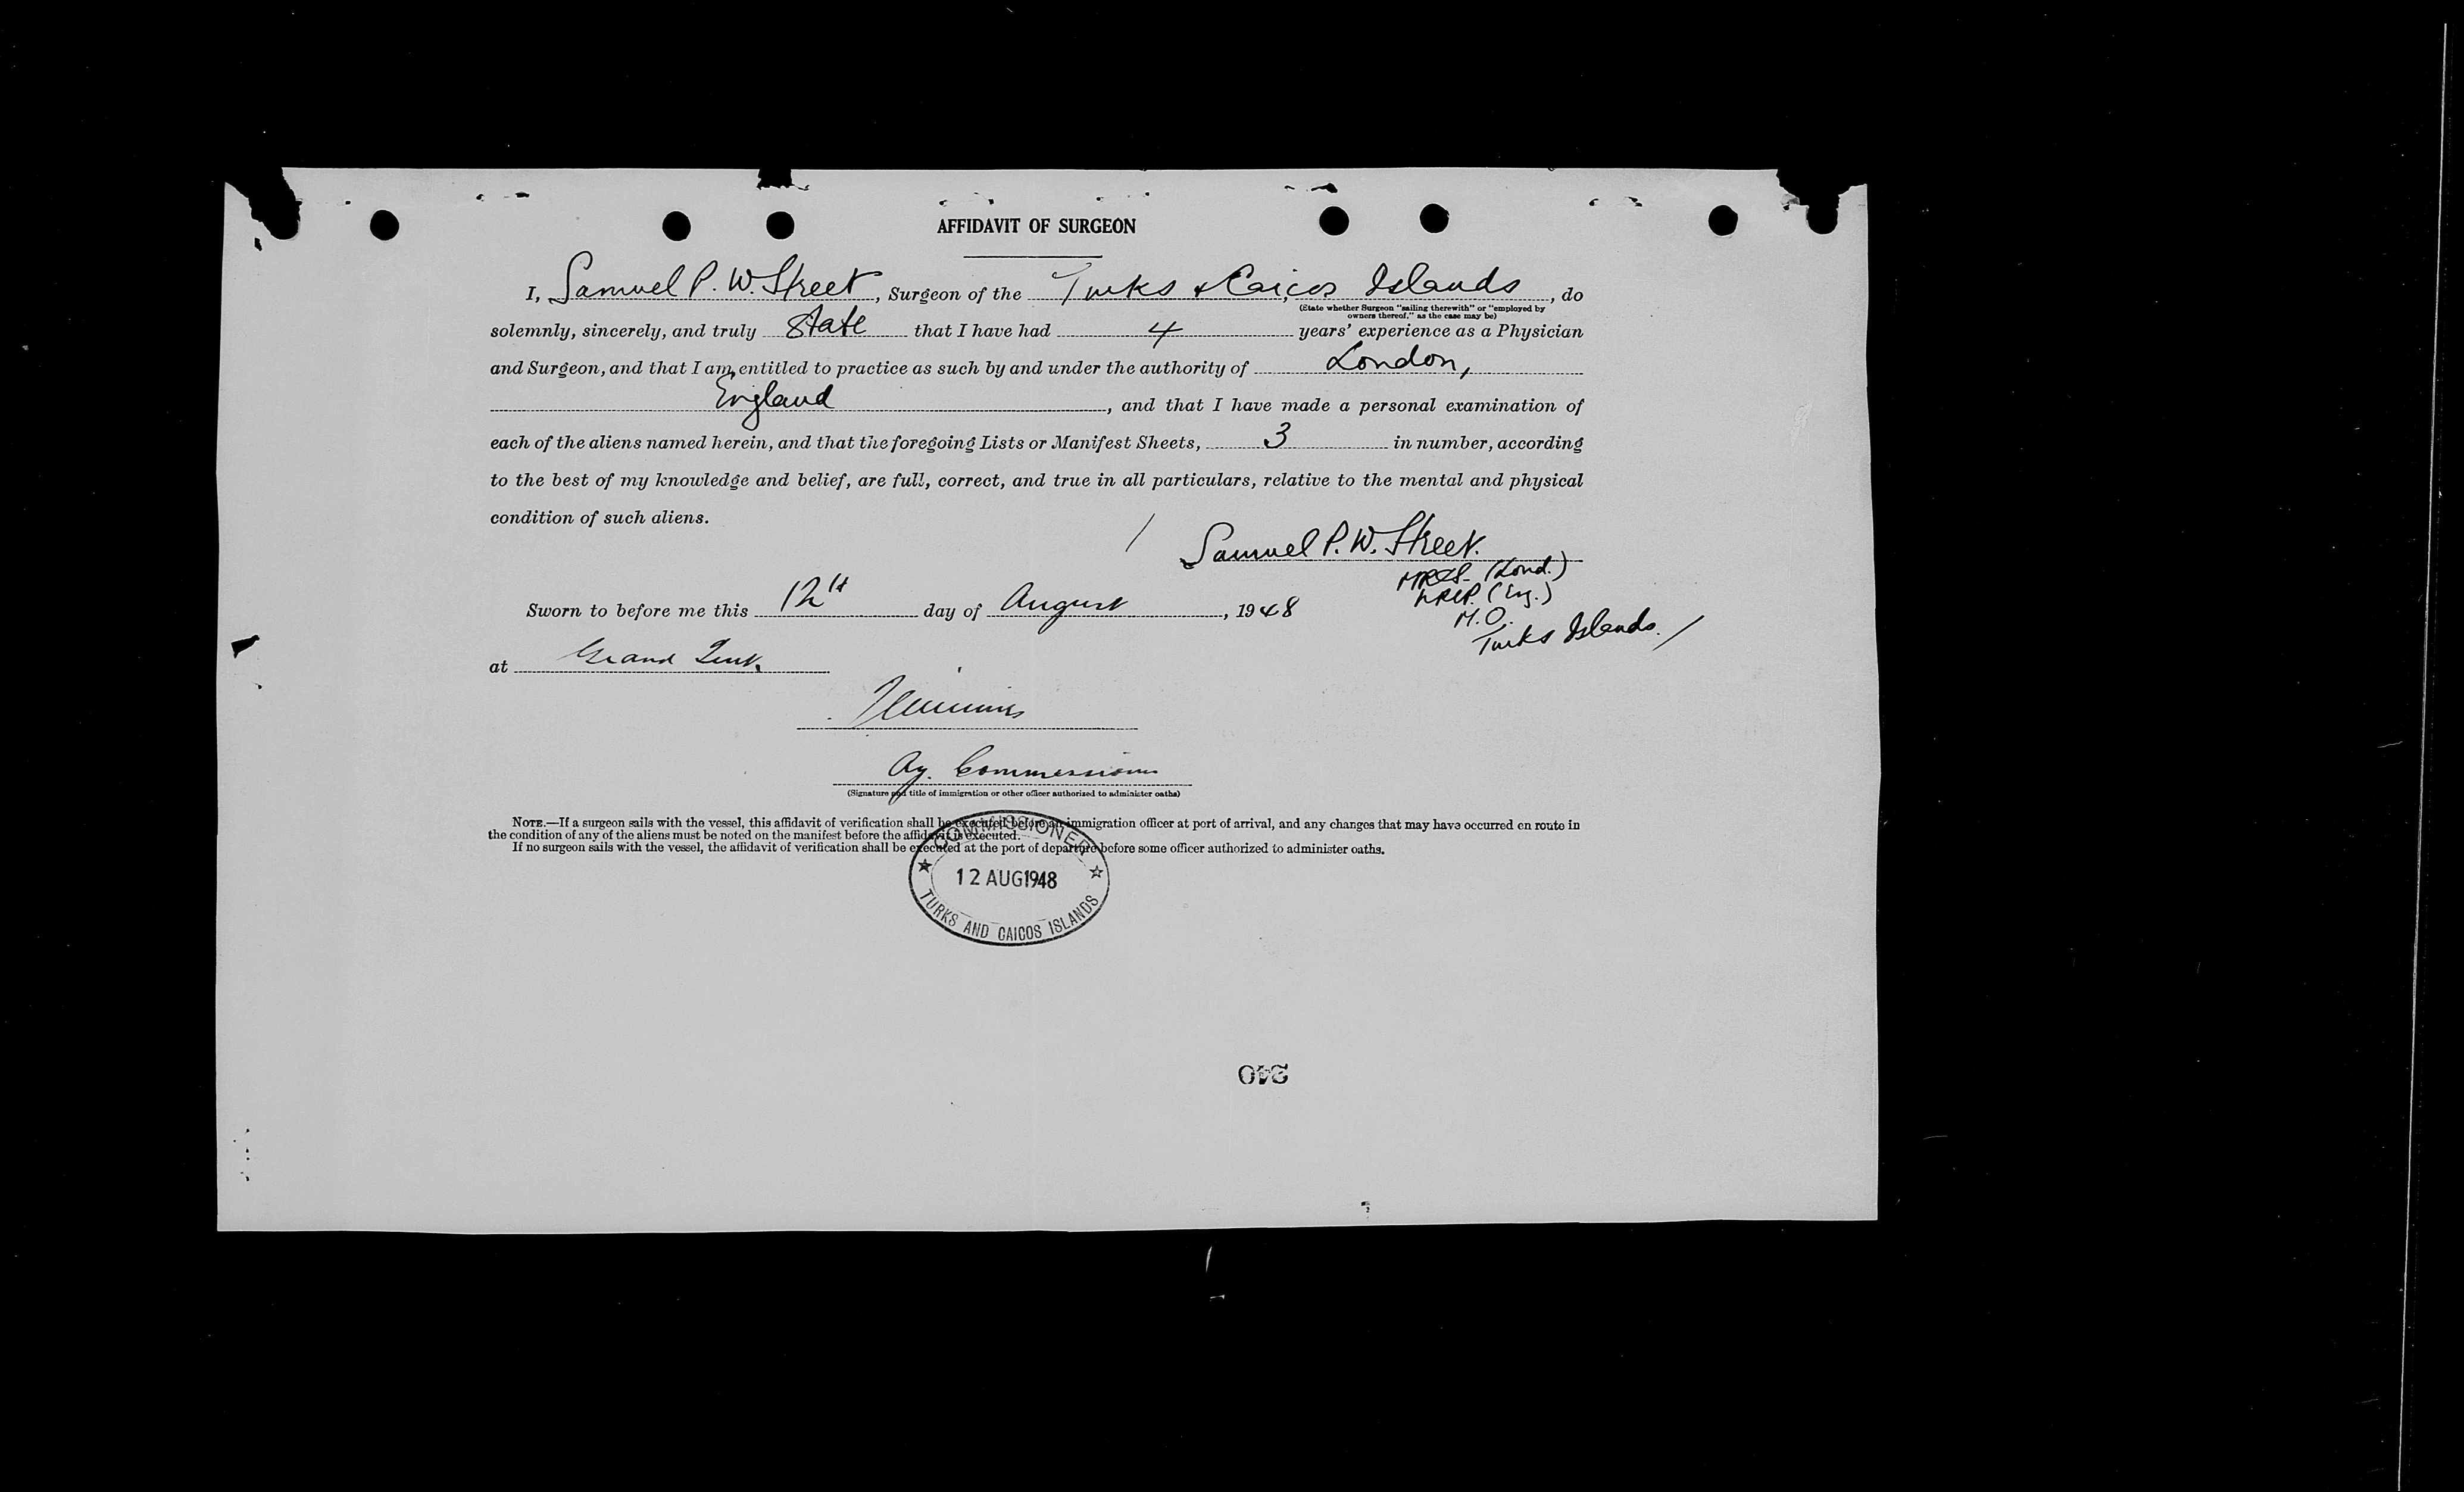 AFFIDAVIT OF SURGEON
I, Samuel P. W. Street, Surgeon of the Turks & Caicos Islands, do
(State whether Surgeon "sailing therewith" or "employed by
owners thereof," as the case may be)
solemnly, sincerely, and truly state that I have had 4 years' experience as a Physician
and Surgeon, and that I am entitled to practice as such by and under the authority of London,
England, and that I have made a personal examination of
each of the aliens named herein, and that the foregoing Lists or Manifest Sheets, 3 in number, according
to the best of my knowledge and belief, are full, correct, and true in all particulars, relative to the mental and physical
condition of such aliens.
Samuel P. W. Street.
MRCS (Lond.)
LRCP. (Eng.)
M.O.
Turks Islands.
Sworn to before me this 12th day of August, 1948
at Grand Turk
Ag. Commissioner
(Signature and title of immigration or other officer authorized to administer oaths)
NOTE.—If a surgeon sails with the vessel, this affidavit of verification shall be executed before an immigration officer at port of arrival, and any changes that may have occurred en route in
the condition of any of the aliens must be noted on the manifest before the affidavit is executed.
If no surgeon sails with the vessel, the affidavit of verification shall be executed at the port of departure before some officer authorized to administer oaths.
COMMISSIONER
12 AUG 1948
TURKS AND CAICOS ISLANDS
240